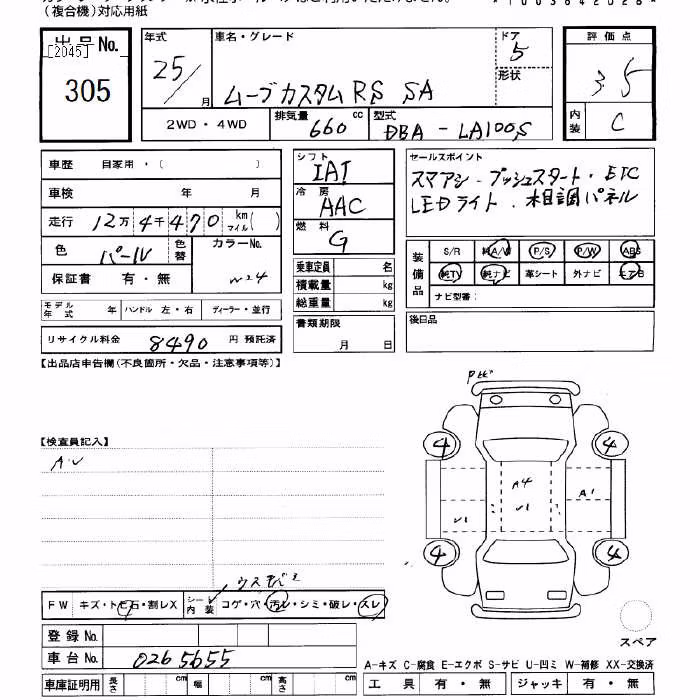 (複合機)対応用紙
出品No.
[2045]
305
年式 25/月
車名・グレード ムーブカスタム RS SA
ドア 5
形状
2WD・4WD
排気量 660 cc
型式 DBA-LA100S
評価点 3.5
内装 C
車歴 自家用・( )
車検 年 月
走行 12万4千470 km マイル( )
色 パール
色替
カラーNo. W24
保証書 有・無
モデル年式 年 ハンドル 左・右 ディーラー・並行
リサイクル料金 8490 円 預託済
シフト IAT
冷房 AAC
燃料 G
乗車定員 名
積載量 kg
総重量 kg
書類期限
月 日
セールスポイント
スマアシ・プッシュスタート・ETC
LEDライト・木目調パネル
装備品
S/R 純A/W P/S P/W ABS
純TV 純ナビ 革シート 外ナビ エアB
ナビ型番:
後日品
【出品店申告欄(不良箇所・欠品・注意事項等)】
【検査員記入】
4 4
A4
V1
A1
V1
4 4
FW キズ・トビ石・割レX
シート内装 コゲ・穴・汚レ・シミ・破レ・スレ
登録No.
車台No. 0265655
スペア
A-キズ C-腐食 E-エクボ S-サビ U-凹ミ W-補修 XX-交換済
車庫証明用 長さ cm 幅 cm 高さ cm
工具 有・無 ジャッキ 有・無